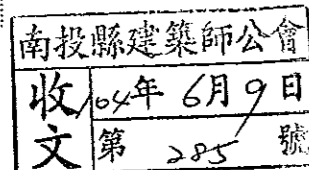 南投縣建築師公會
收文
104年6月9日
第285號